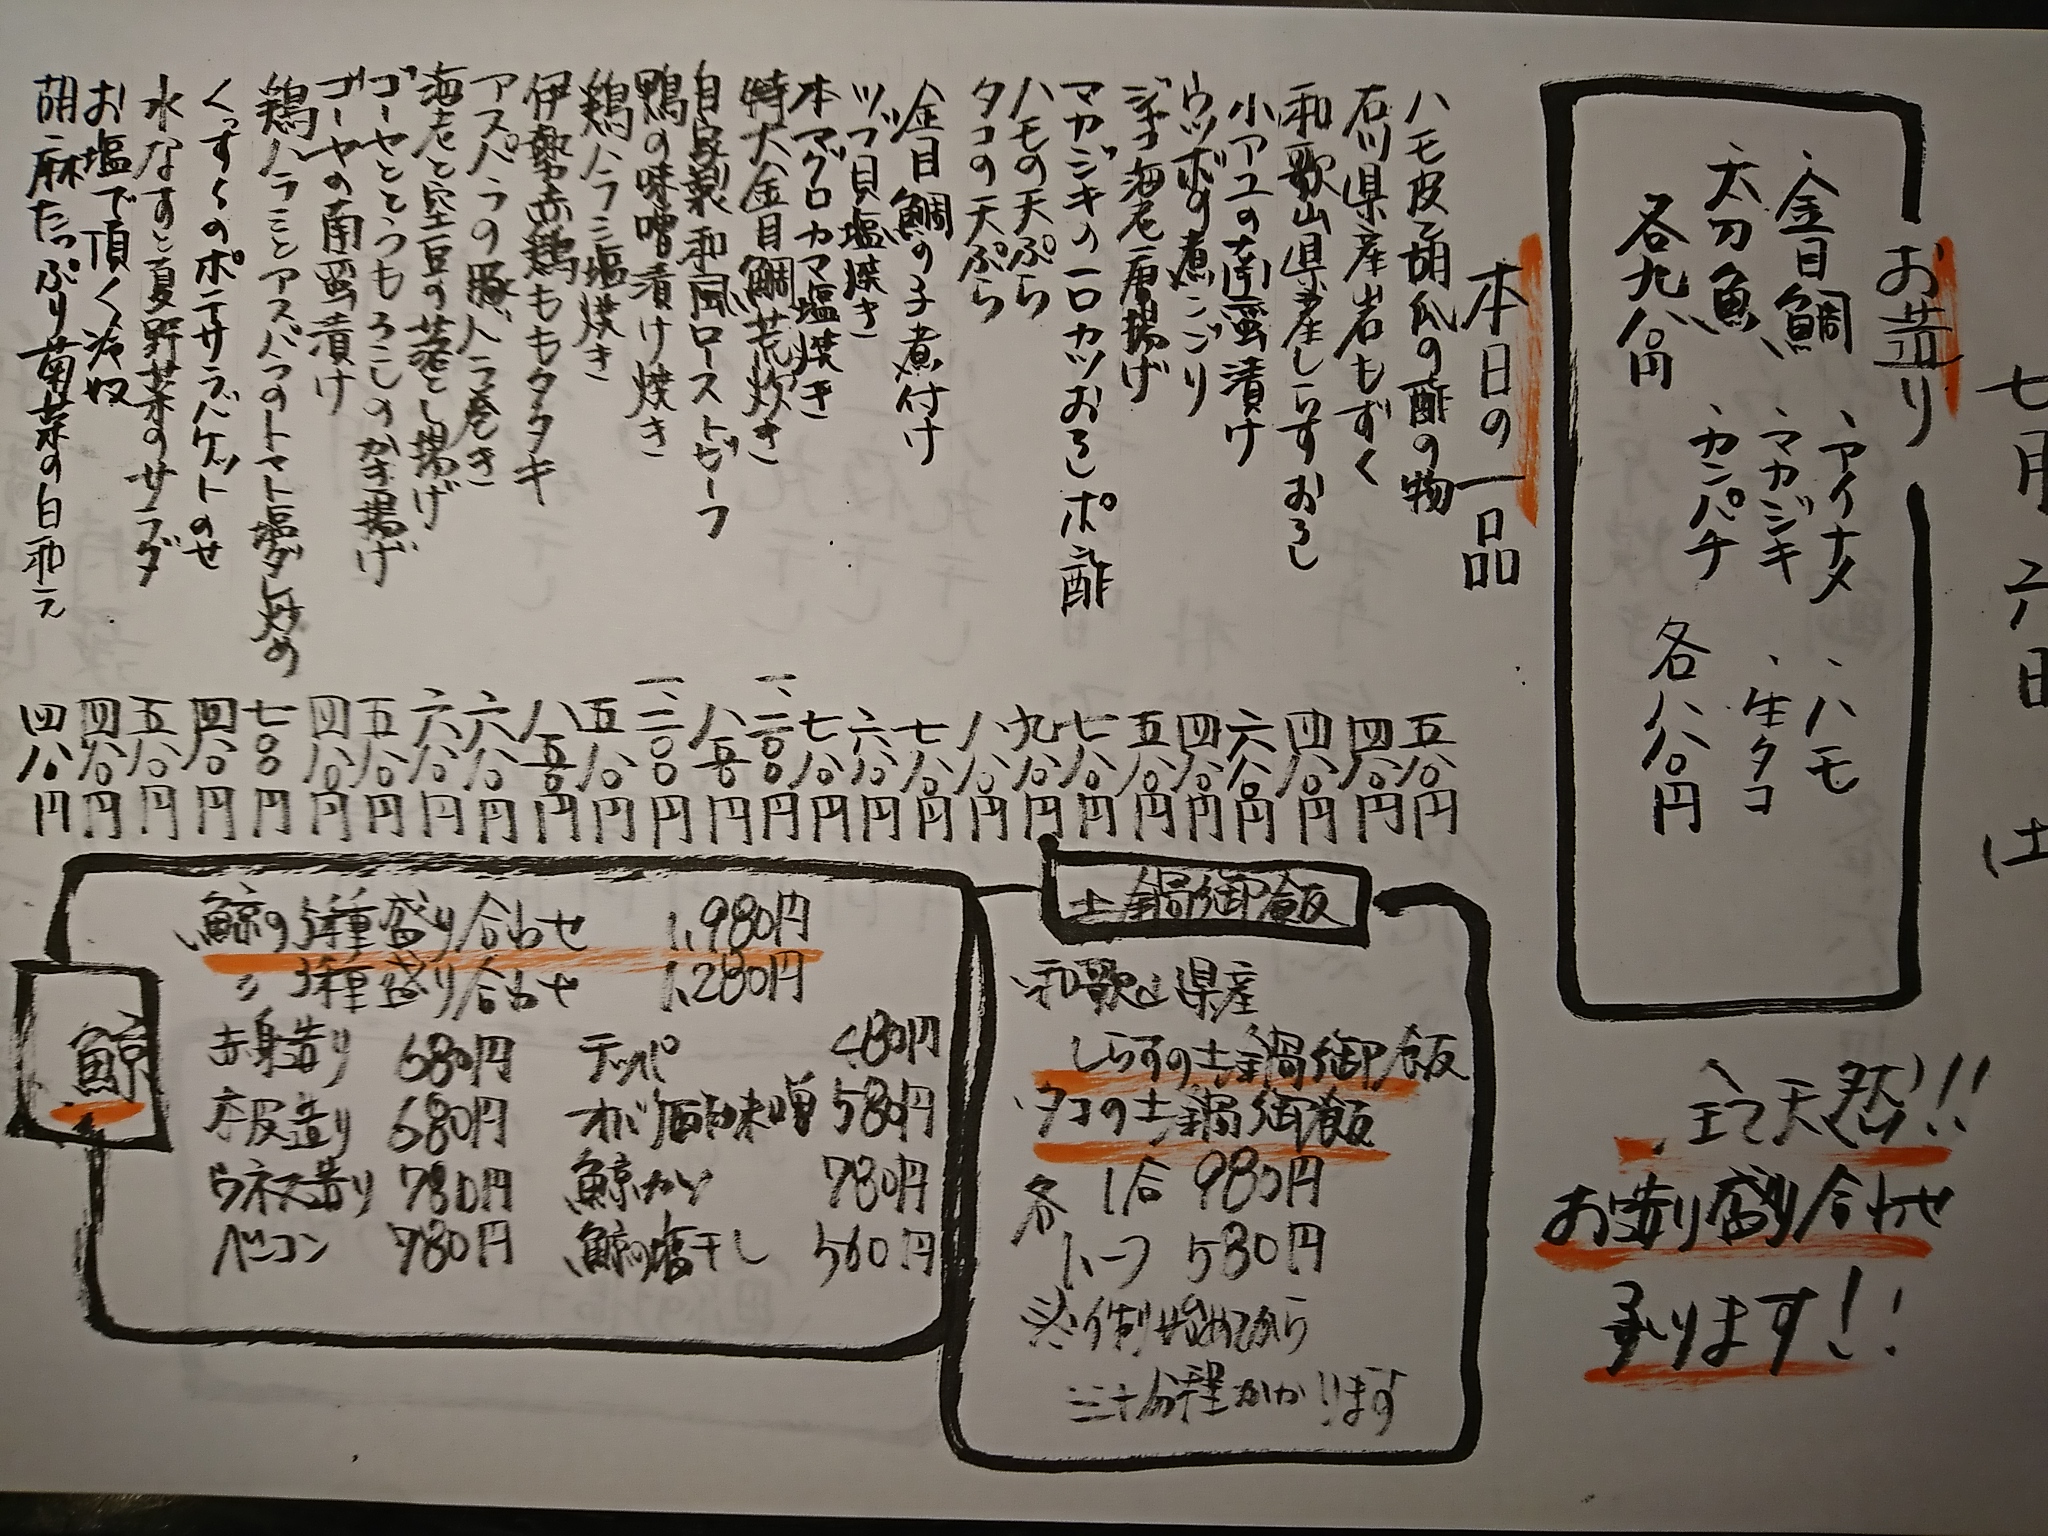 七月六日 (土
お造り
、アイナメ
、マカジキ
、カンパチ
、ハモ
、生タコ
各八八〇円
、金目鯛
、太刀魚
各九八〇円
全て天然!!!
お造り盛り合わせ
承ります!!
本日の一品
ハモ皮と胡瓜の酢の物 五八〇円
石川県産岩もずく 四八〇円
和歌山県産しらすおろし 四八〇円
小アユの南蛮漬け 六八〇円
ウツボの煮こごり 四八〇円
ジャコ海老唐揚げ 五八〇円
マカジキの一口カツおろしポン酢 七八〇円
ハモの天ぷら 九八〇円
タコの天ぷら 八八〇円
金目鯛の子煮付け 七八〇円
ツブ貝塩焼き 六八〇円
本マグロカマ塩焼き 七八〇円
特大金目鯛荒炊き 一、二〇〇円
自家製和風ローストビーフ 八五〇円
鴨の味噌漬け焼き 一、二〇〇円
鶏ハラミ塩焼き 五八〇円
伊勢赤鶏ももタタキ 八五〇円
アスパラの豚バラ巻き 六八〇円
海老と空豆の落とし揚げ 六八〇円
ゴーヤととうもろこしのかき揚げ 五八〇円
ゴーヤの南蛮漬け 四八〇円
鶏ハラミとアスパラのトマト塩ダレ炒め 七〇〇円
くっすくのポテサラバケットのせ 四八〇円
水なすと夏野菜のサラダ 五八〇円
お塩で頂く冷奴 四八〇円
胡麻たっぷり菊菜の白和え 四八〇円
土鍋御飯
、和歌山県産
しらすの土鍋御飯
、タコの土鍋御飯
各 1合 980円
ハーフ 580円
※作り始めてから
三十分程かかります
鯨
、鯨の5種盛り合わせ 1,980円
〃 3種盛り合わせ 1,280円
赤身造り 680円
本皮造り 680円
ウネス造り 780円
ベーコン 780円
テッパ 480円
オバケ酢味噌 580円
鯨カツ 780円
鯨の塩干し 560円